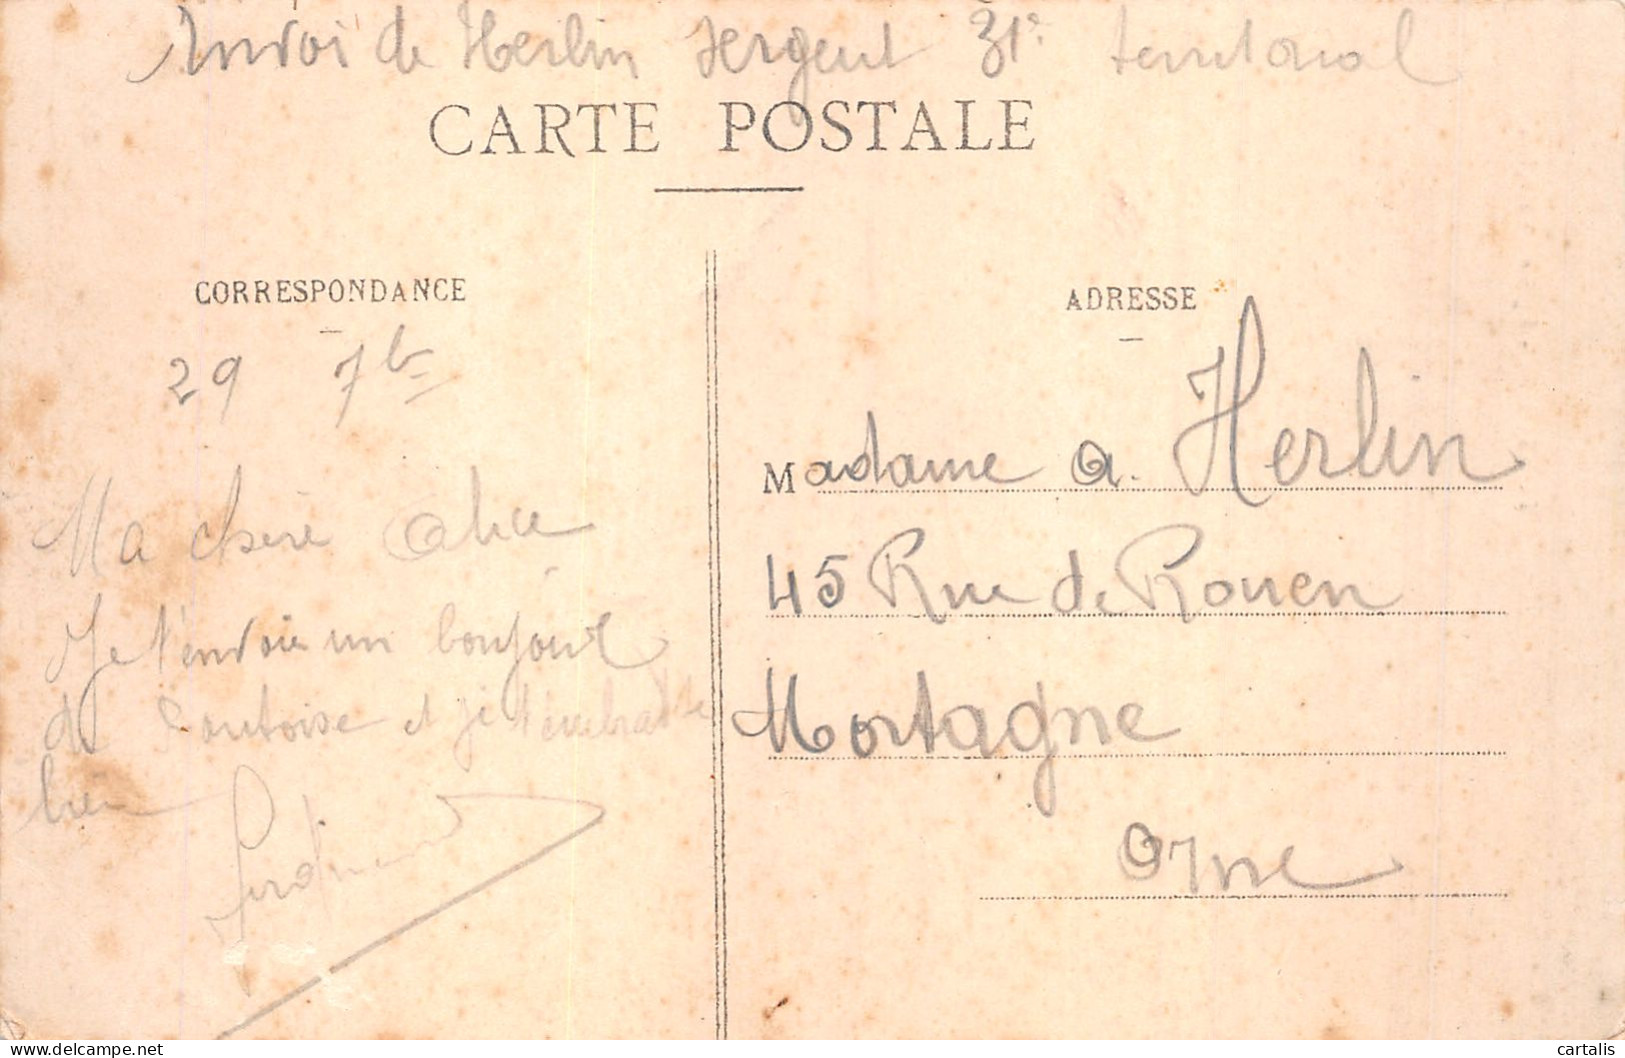 Envoi de Herlin sergent 31e territorial
CARTE POSTALE
CORRESPONDANCE
29 7b
Ma chère Alice
Je t'envoie un bonjour
de Pontoise et je t'embrasse
bien
Ferdinand
ADRESSE
Madame A. Herlin
45 Rue de Rouen
Mortagne
Orne
delcampe.net
cartalis